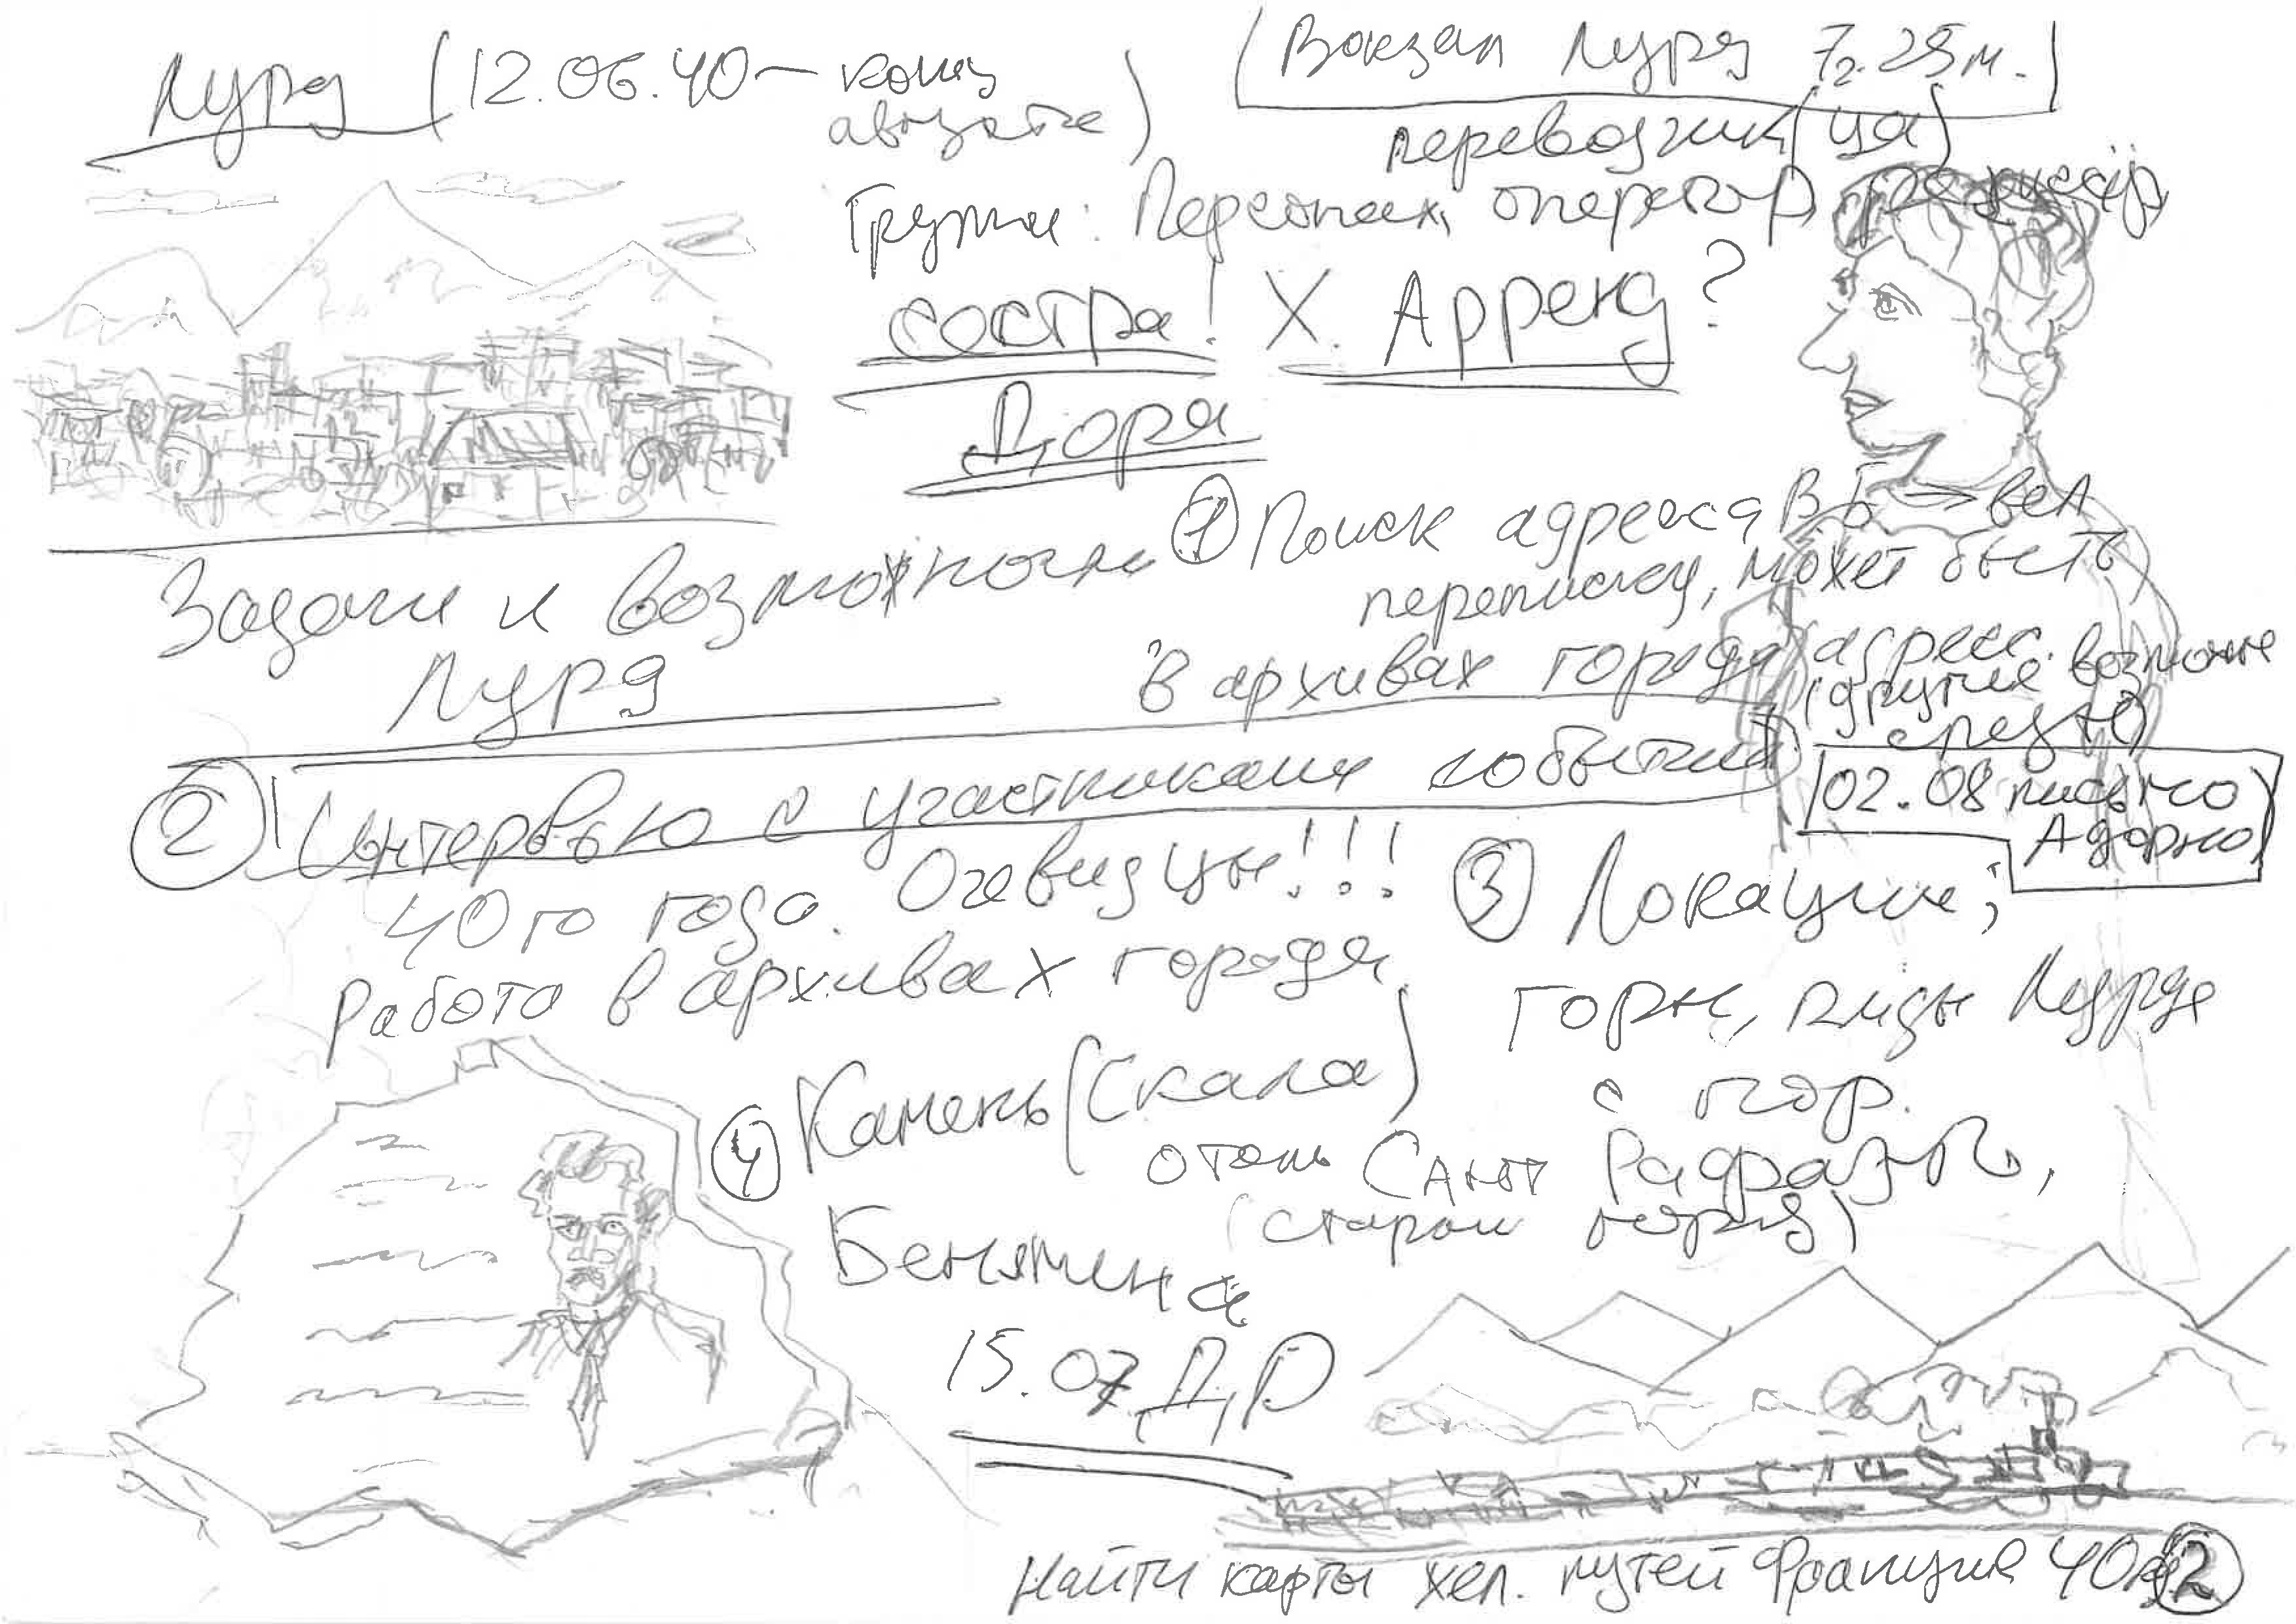 Лурд (12.06.40 – конец
августа)
Вокзал Лурд 7г. 25м.
переводчик(ца)
Группа: Персонаж, оператор, режиссёр
сестра! Х. Арренд?
Дора
Задачи и возможности
Лурд
① Поиск адреса ВБ → вел
переписку, может быть
в архивах города адресс.
(другие возможные
02.08 письмо
Адорно
② Интервью с участниками событий
40го года. Очевидцы!!!
Работа в архивах города
③ Локации;
горы, виды Лурда
с гор.
④ Камень (Скала)
Бенямина
отель Сант
(старый город)
15.07 ДР
Найти карты жел. путей Франции 40
②